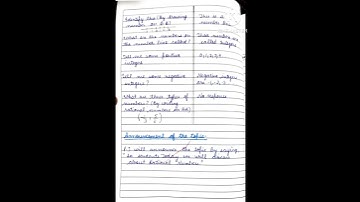 Identify this (By drawing
number on B.B)
This is a
number line
What are the numbers on
the number line called?
These numbers are
called integers
Tell me some positive
integers
0, 1, 2, 3, 4
Tell me some negative
integers?
Negative integers
are -1, -2, -3
What are these types of
numbers? (By writing
rational numbers on B.B)
No response
Announcement of the topic
I will announce the topic by saying
"So students, today we will discuss
about Rational Number"